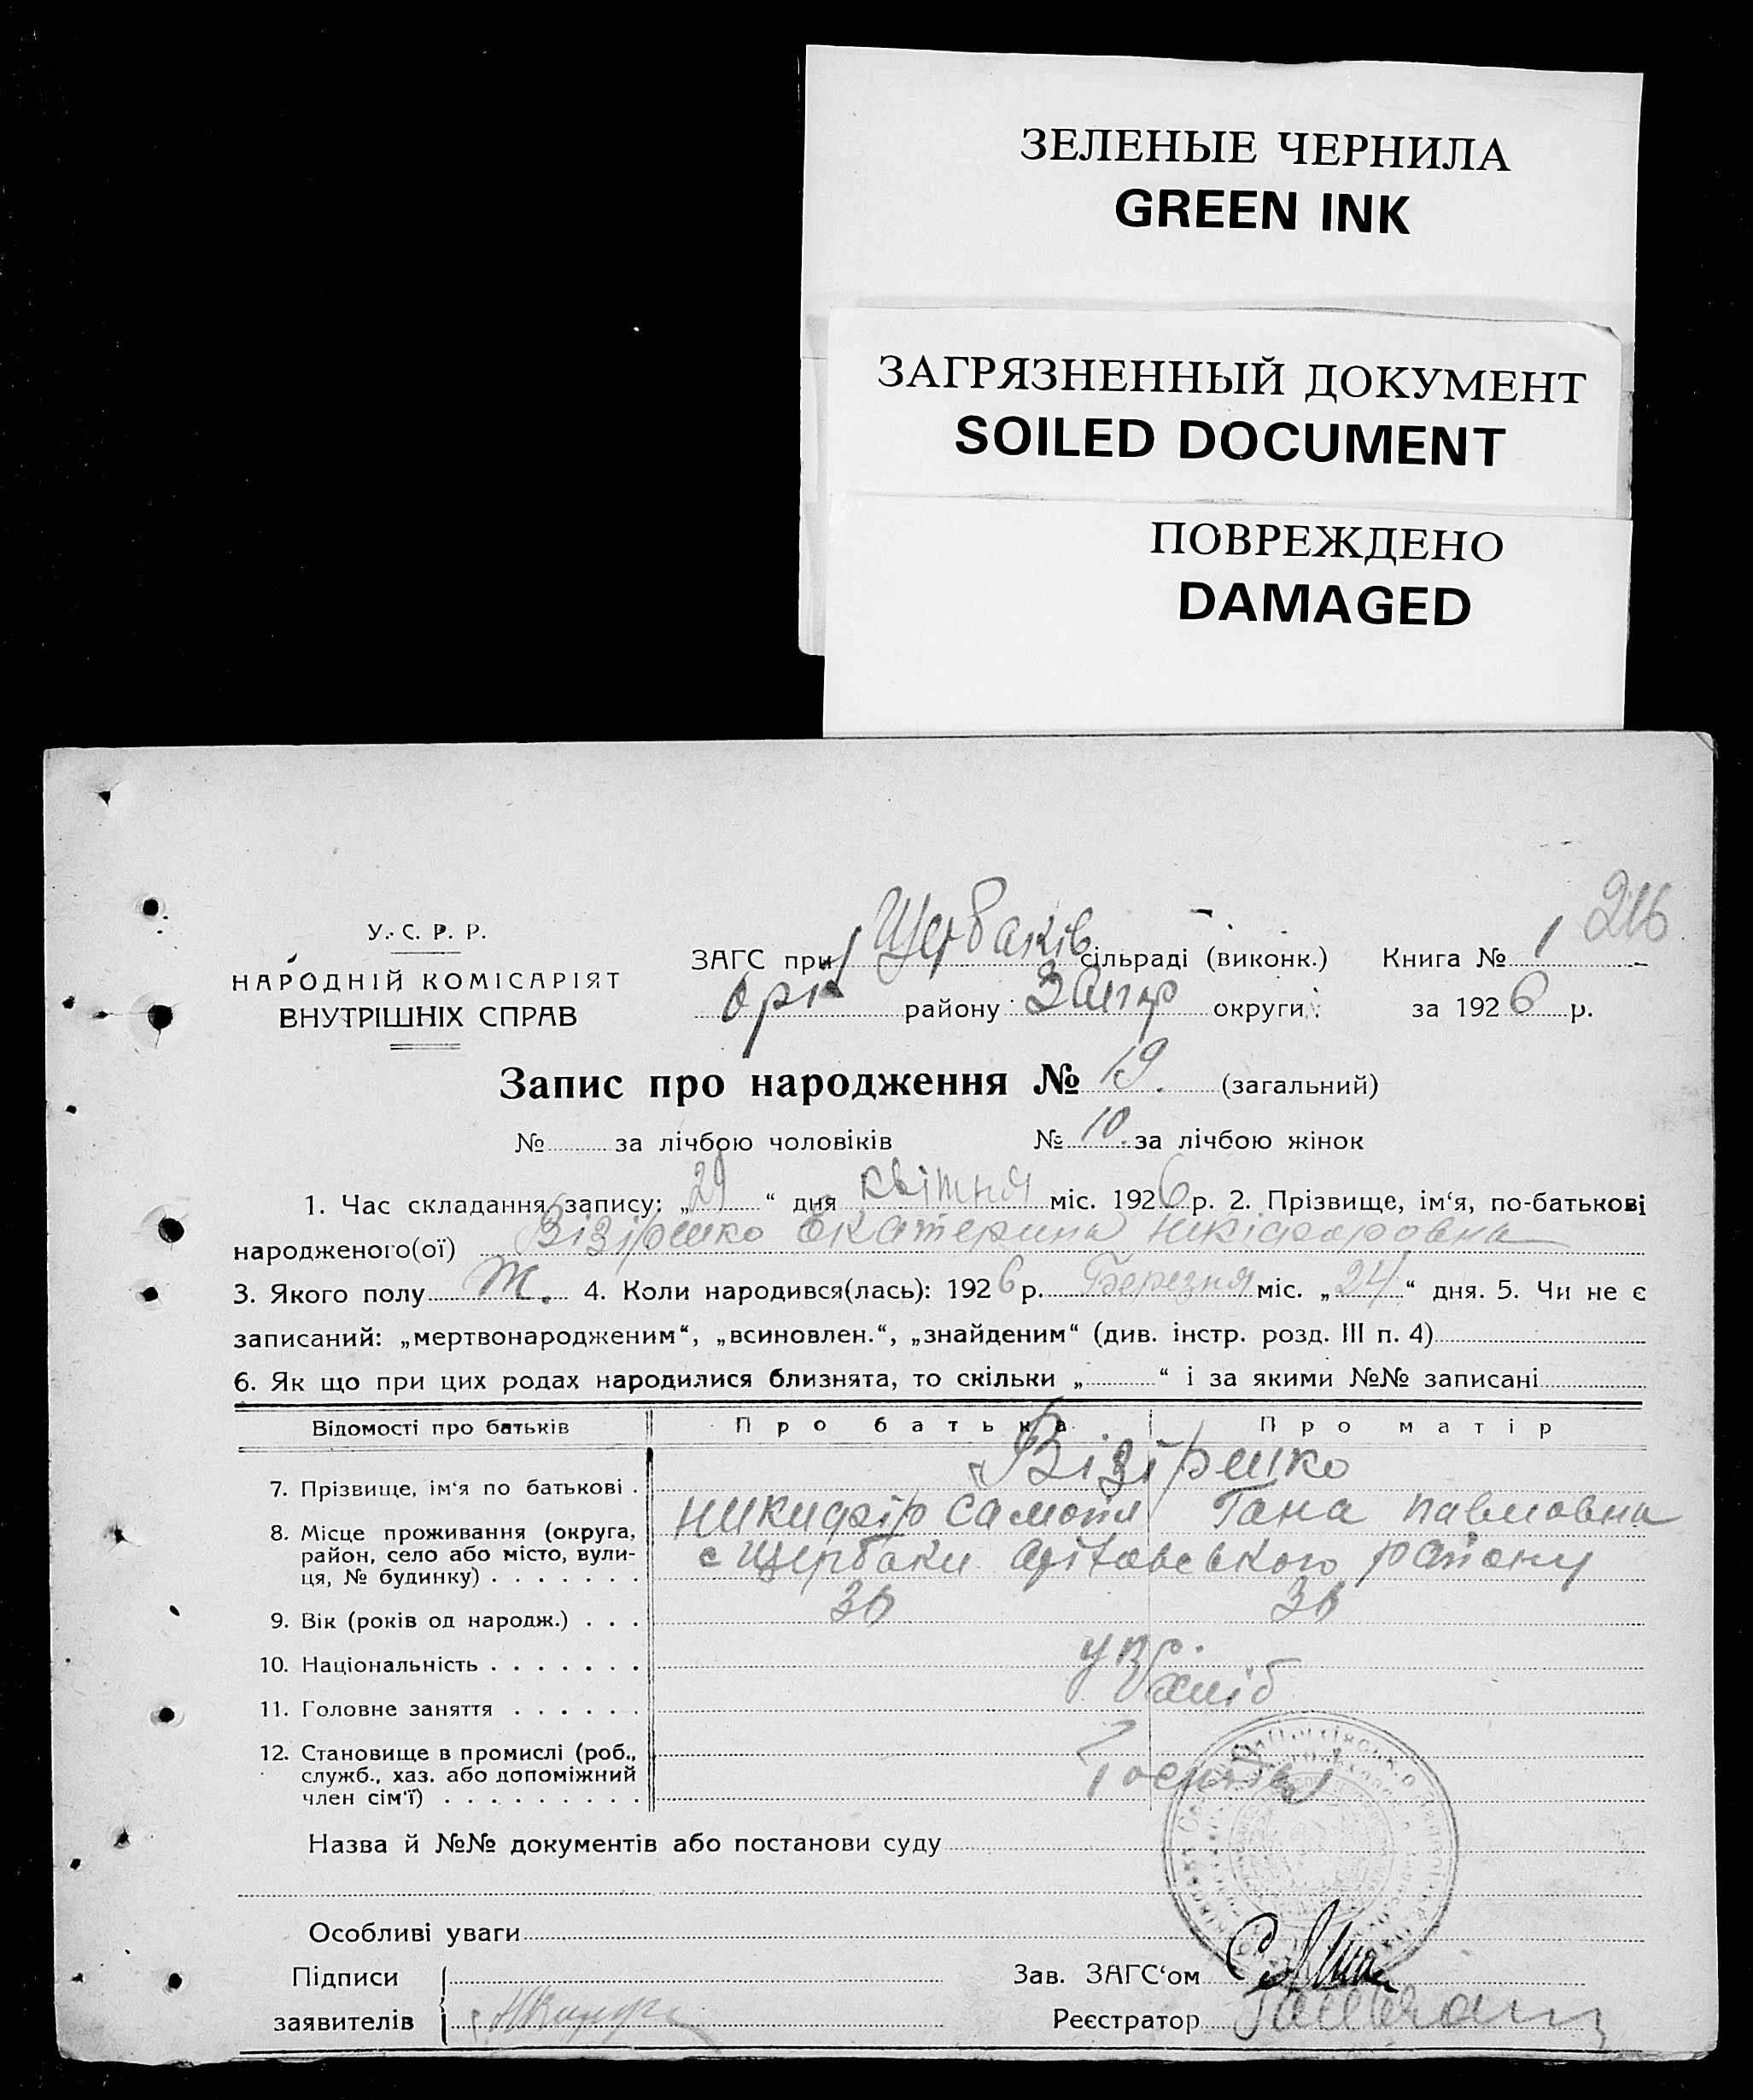 ЗЕЛЕНЫЕ ЧЕРНИЛА
GREEN INK
ЗАГРЯЗНЕННЫЙ ДОКУМЕНТ
SOILED DOCUMENT
ПОВРЕЖДЕНО
DAMAGED
216
У. С. Р. Р.
НАРОДНІЙ КОМІСАРІЯТ
ВНУТРІШНІХ СПРАВ
ЗАГС при Щербаків сільраді (виконк.) Книга № 1
Оріх району Запор округи за 1926 р.
Запис про народження № 19. (загальний)
№ за лічбою чоловіків № 10. за лічбою жінок
1. Час складання запису: „29“ дня квітня міс. 1926 р. 2. Прізвище, ім‘я, по-батькові
народженого(ої) Візіренко Екатерина Никіфоровна
3. Якого полу Ж. 4. Коли народився(лась): 1926 р. Березня міс. „24“ дня. 5. Чи не є
записаний: „мертвонародженим“, „всиновлен.“, „знайденим“ (див. інстр. розд. III п. 4)
6. Як що при цих родах народилися близнята, то скільки „ “ і за якими №№ записані
Відомості про батьків Про батька Про матір
Візіренко
7. Прізвище, ім‘я по батькові .
Никифір Самойл Гана Павловна
8. Місце проживання (округа,
район, село або місто, вули-
ця, № будинку) . . . . . . .
с Щербаки Оріхівського району
9. Вік (років од народж.) . . . 36 36
10. Національність . . . . . . . укр.
11. Головне заняття . . . . . . хліб
12. Становище в промислі (роб.,
служб., хаз. або допоміжний
член сім‘ї) . . . . . . . . .
Назва й №№ документів або постанови суду
Особливі уваги
Підписи
заявителів
Зав. ЗАГС‘ом
Реєстратор